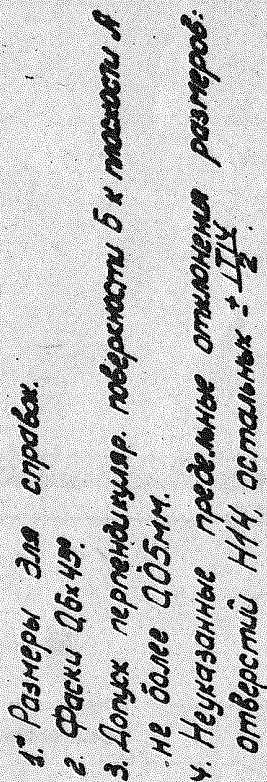 1.* Размеры для справок.
2. Фаски 0,6х45°.
3. Допуск перпендикуляр. поверхности Б к плоскости А
не более 0,05мм.
4. Неуказанные предельные отклонения размеров:
отверстий Н14, остальных ± IT14/2.